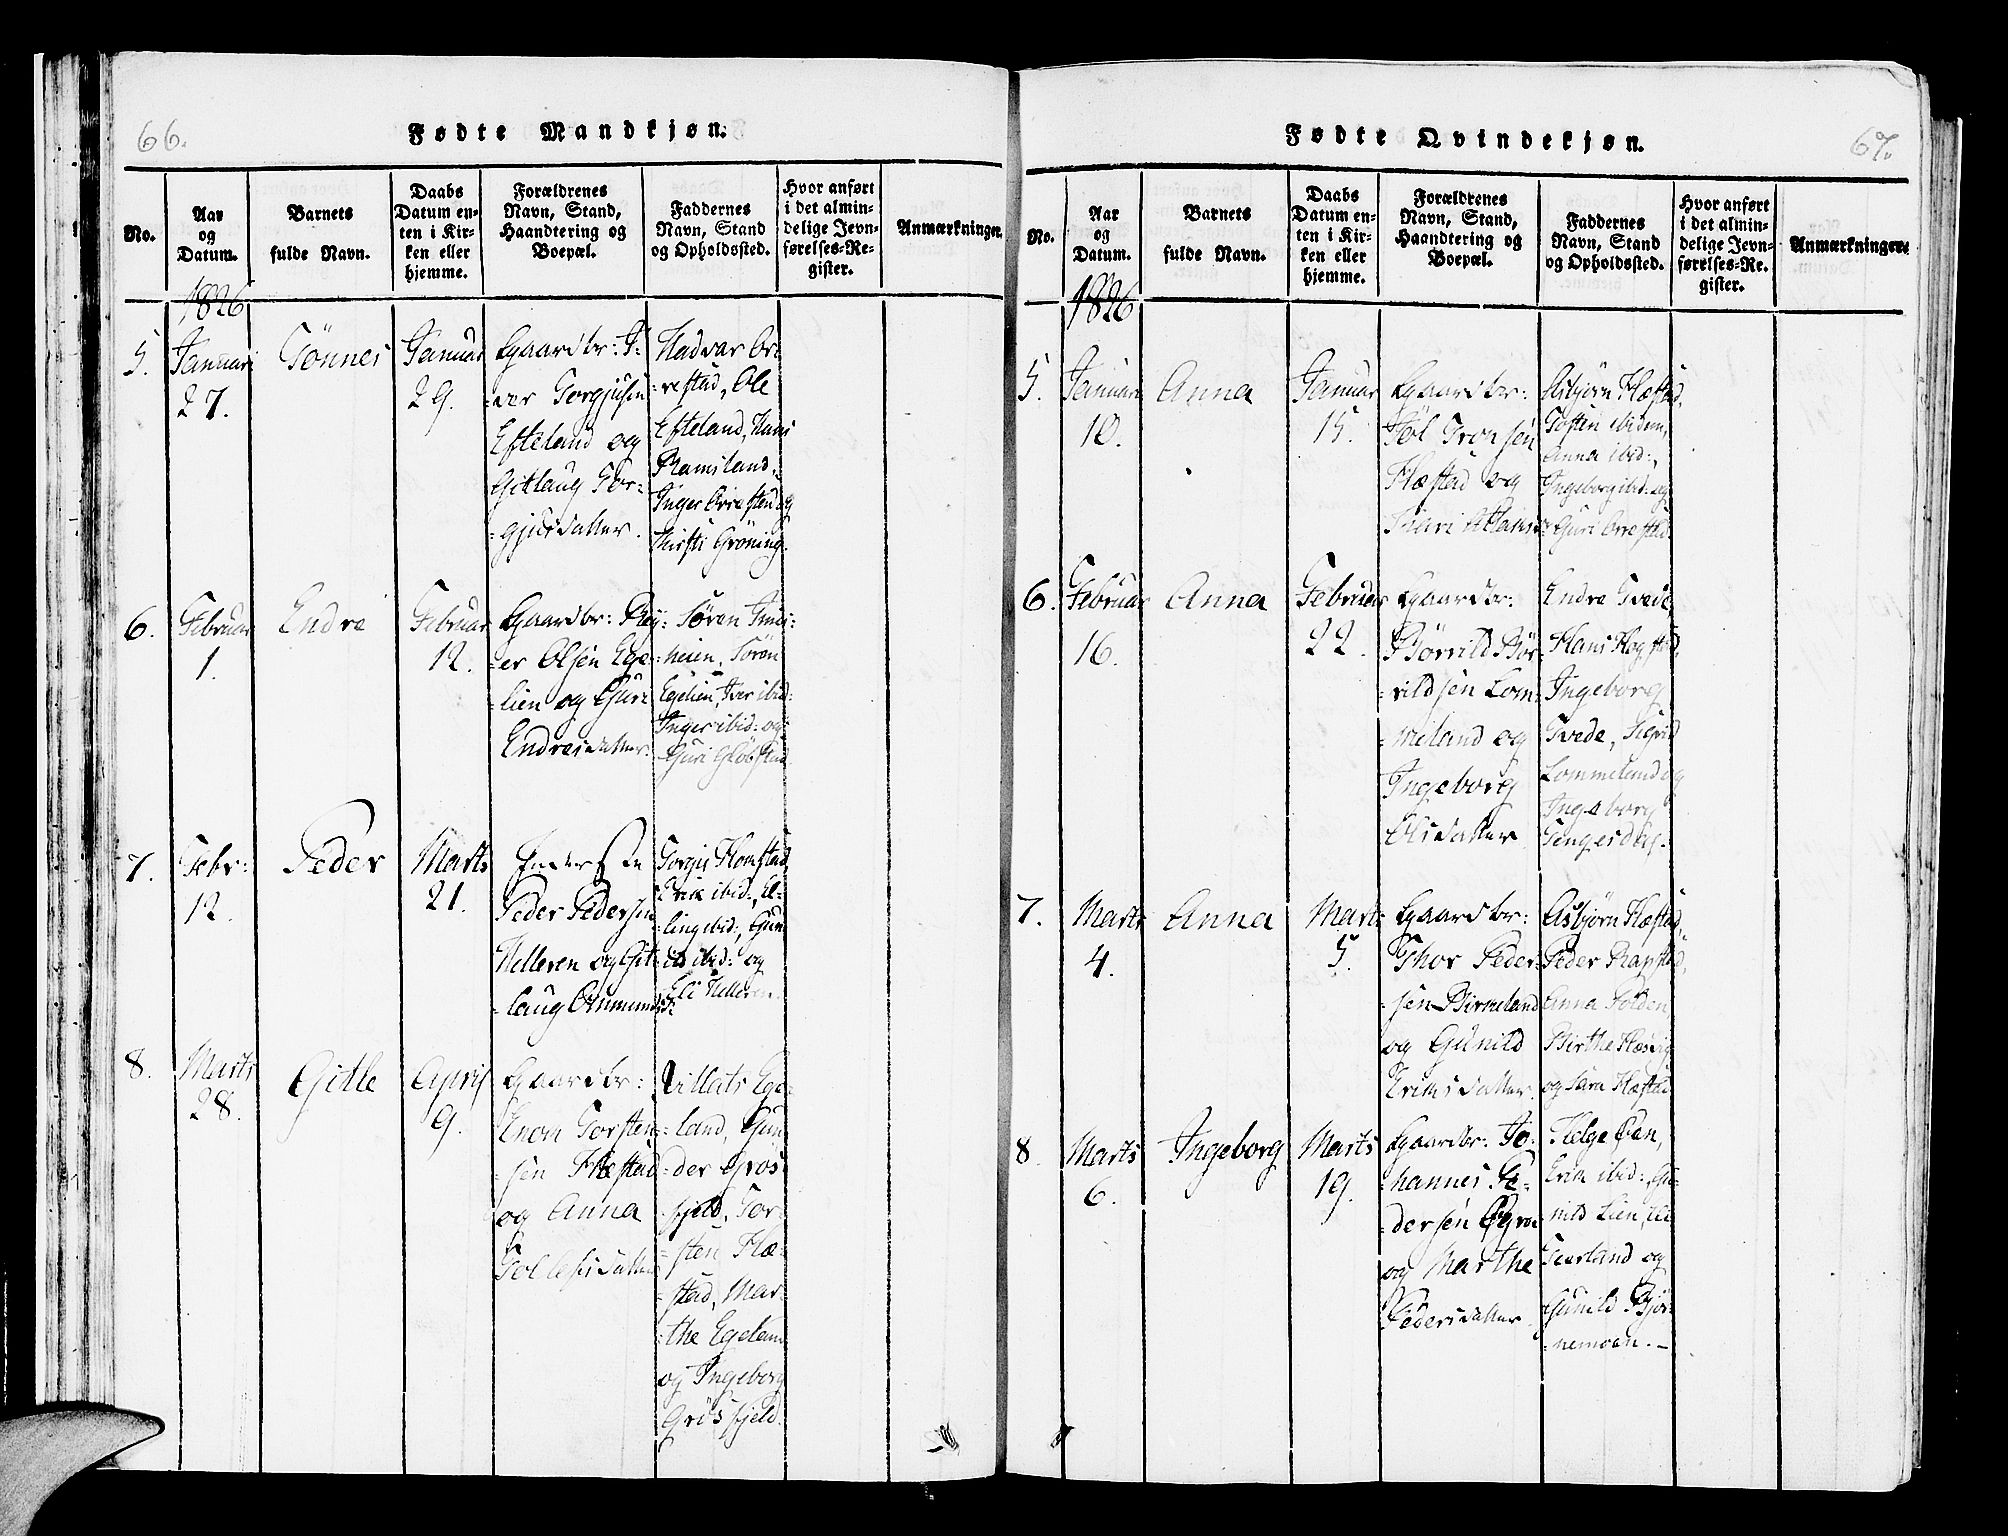 66.
Fødte Mandkjøn.
No.
Aar
og
Datum.
Barnets
fulde Navn.
Daabs
Datum en-
ten i Kir-
ken eller
hjemme.
Forældrenes
Navn, Stand,
Haandtering og
Boepæl.
Faddernes
Navn, Stand
og Opholdssted.
Hvor anført
i det almin-
delige Jevn-
førelses-Re-
gister.
Anmærkninger.
1826
5.
Januari
27.
Tönnes
Januar
29.
Gaardbr: I-
-ver Torgjusen
Efteland og
Gitlaug Tor-
-gjusdatter.
Hadvar Ør-
-restad, Ole
Efteland, Hans
Ramsland,
Inger Ørrestad og
Kirsti Gröning.
6.
Februar
1.
Endre
Februar
12.
Gaardbr: Rey-
-er Olsen Ege-
-lien og Guri
Endresdatter.
Sören
-heien, Sören
Egelien, Iver ibid:
Inger ibid: og
Guri
7.
Febr:
12.
Peder
Marts
21.
Peder Pedersen
Helleren og Git-
-laug
Torgier
Erik ibid:, El-
-ling ibid:, Gun
ibid: og
Eli Helleren.
8.
Marts
28.
Gitle
April
9.
Gaardbr:
Enom Torsten-
-sen Flæstad
og Anna
Tollefsdatter
Villats Ege-
-land, Gun
-der Grös-
-fjeld, Tor-
-sten Flæ-
-stad, Mar-
-the Egeland
og Ingeborg
Grösfjeld.
67.
Fødte Qvindekjøn.
No.
Aar
og
Datum.
Barnets
fulde Navn.
Daabs
Datum en-
ten i Kir-
ken eller
hjemme.
Forældrenes
Navn, Stand,
Haandtering og
Boepæl.
Faddernes
Navn, Stand
og Opholdssted.
Hvor anført
i det almin-
delige Jevn-
førelses-Re-
gister.
Anmærkninger.
1826
5.
Januari
10.
Anna
Januar
15.
Gaardbr:
Tronsen
Flæstad og
Asbjörn Flæstad,
ibidem,
Anna ibid:,
Ingeborg ibid: og
Guri Ørrestad.
6.
Februar
16.
Anna
Februar
22.
Gaardbr:
Börrild Bör-
-rildsen Lom-
-meland og
Ingeborg
Elisdatter
Endre Tvede,
Hans Hogstad,
Ingeborg
Tvede, Sigrid
Lommeland og
Ingeborg
7.
Marts
4.
Anna
Marts
5.
Gaardbr:
Thor Peder-
-sen Birkeland
og Gunild
Eriksdatter.
Asbjörn Flæstad,
Peder Rapstad,
Anna Solden,
Birthe Flæsvig
og Sara Flæstad
8.
Marts
6.
Ingeborg
Marts
19.
Gaardbr: Jo-
-hannes Pe-
-dersen
og Marthe
Pedersdatter.
Helge Øen,
Erik ibid:, Gu-
-nild Lien,
og
Gunild Björ-
-nemoen. -